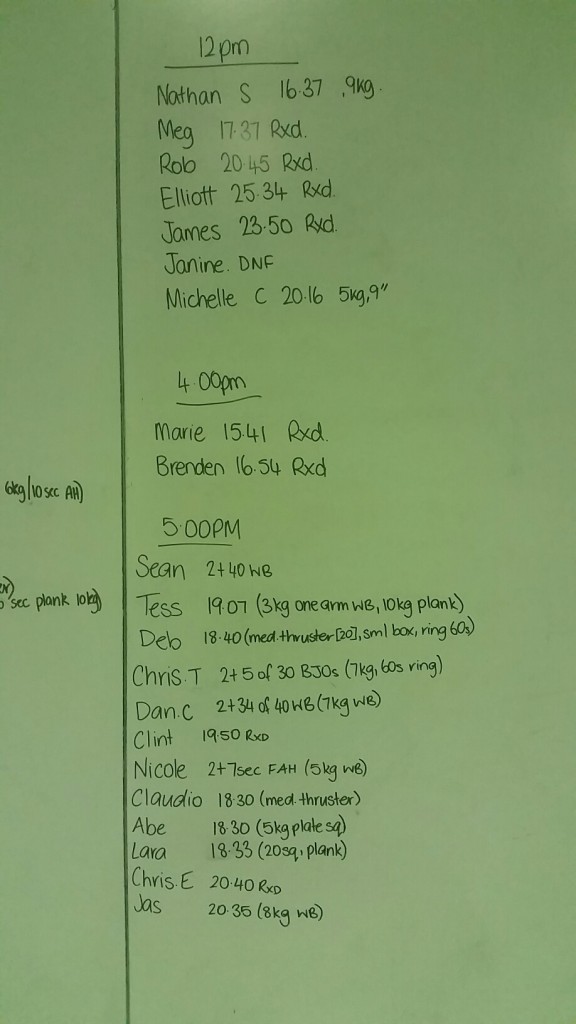 12pm
Nathan S 16.37 ,9kg.
Meg 17.37 Rxd.
Rob 20.45 Rxd.
Elliott 25.34 Rxd.
James 23.50 Rxd.
Janine. DNF
Michelle C 20.16 5kg,9"
4.00pm
Marie 15.41 Rxd.
Brenden 16.54 Rxd
6kg/10 sec AH)
5:00PM
Sean 2+40 WB
sec plank 10kg)
Tess 19.07 (3kg one arm WB, 10kg plank)
Deb 18.40 (med. thruster [20], sml box, ring 60s)
Chris.T 2+5 of 30 BJOs (7kg, 60s ring)
Dan.C 2+34 of 40 WB (7kg WB)
Clint 19.50 RXD
Nicole 2+7sec FAH (5kg WB)
Claudio 18.30 (med. thruster)
Abe 18.30 (5kg plate sq)
Lara 18.33 (20sq, plank)
Chris.E 20.40 RXD
Jas 20.35 (8kg WB)